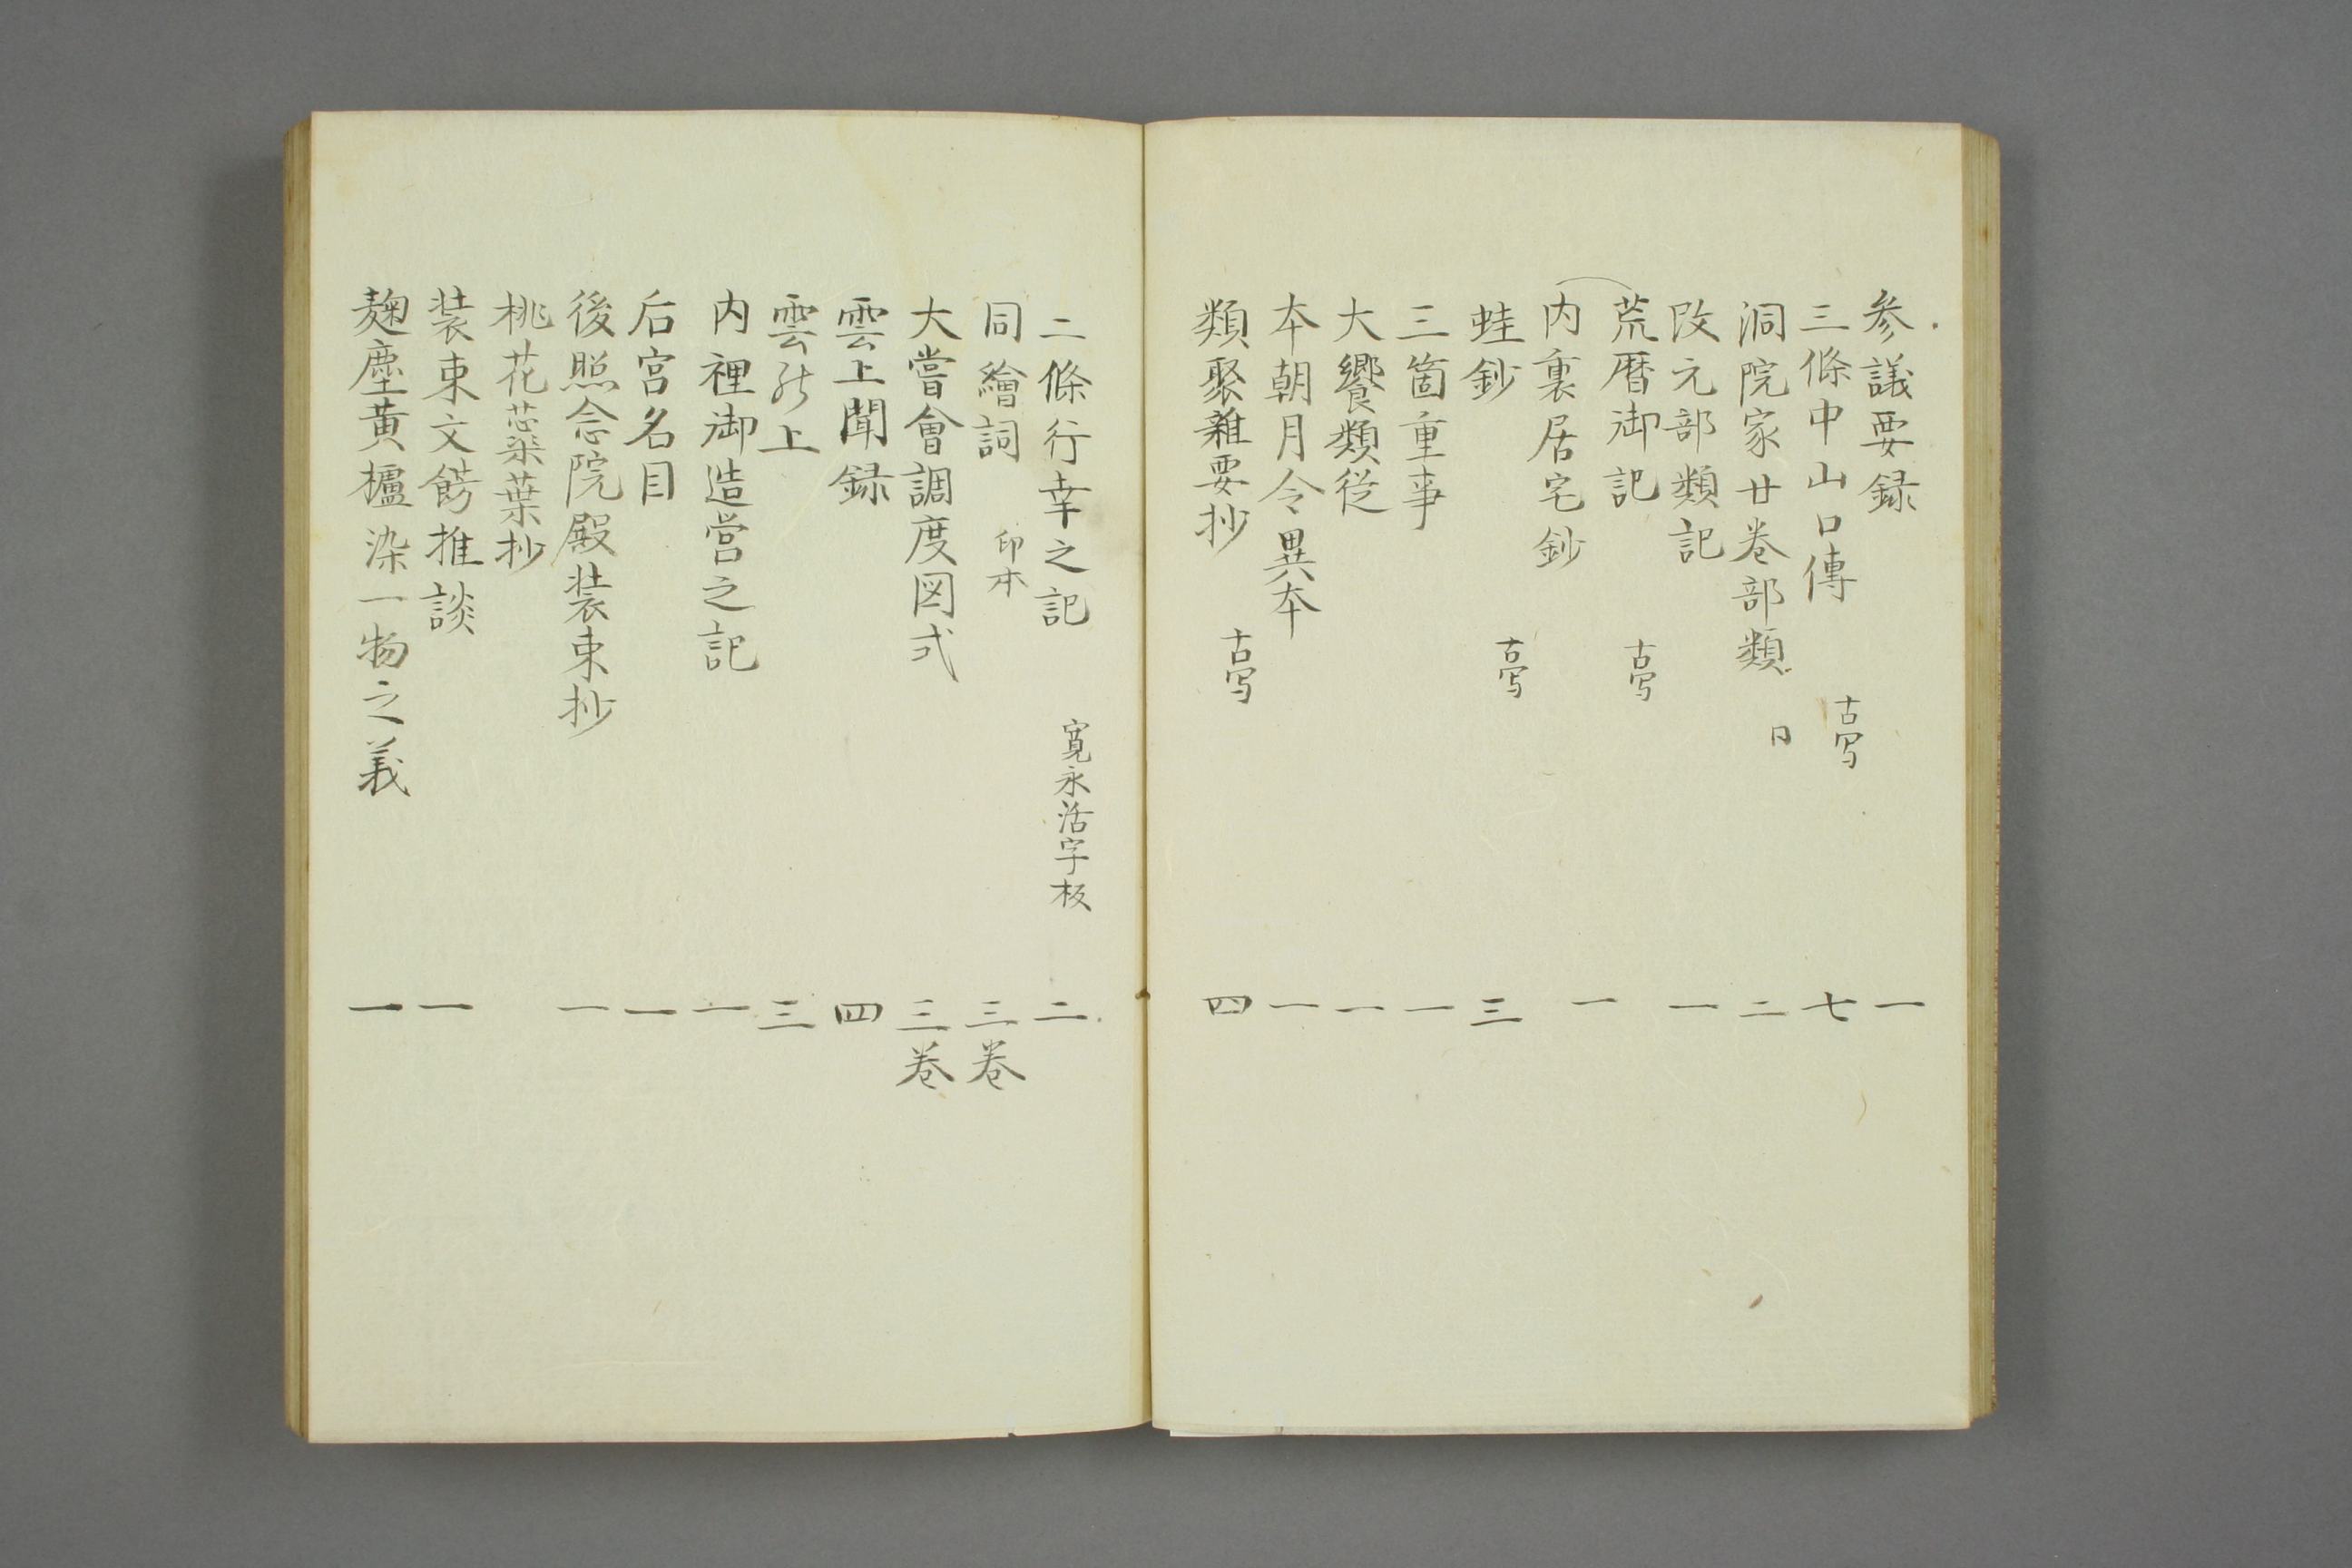 参議要録 一
三條中山口傳 古写 七
洞院家廿巻部類 日 二
改元部類記 一
荒暦御記 古写
内裏居宅鈔 一
蛙鈔 古写 三
三箇重事 一
大饗類従 一
本朝月令異本 一
類聚雜要抄 古写 四
二條行幸之記 寛永活字板 二
同繪詞 印本 三巻
大嘗會調度図式 三巻
雲上聞録 四
雲能上 三
内裡御造営之記 一
后宮名目 一
後照念院殿装束抄 一
桃花蕊葉抄
装束文餝推談 一
麹塵黄櫨染一物之義 一